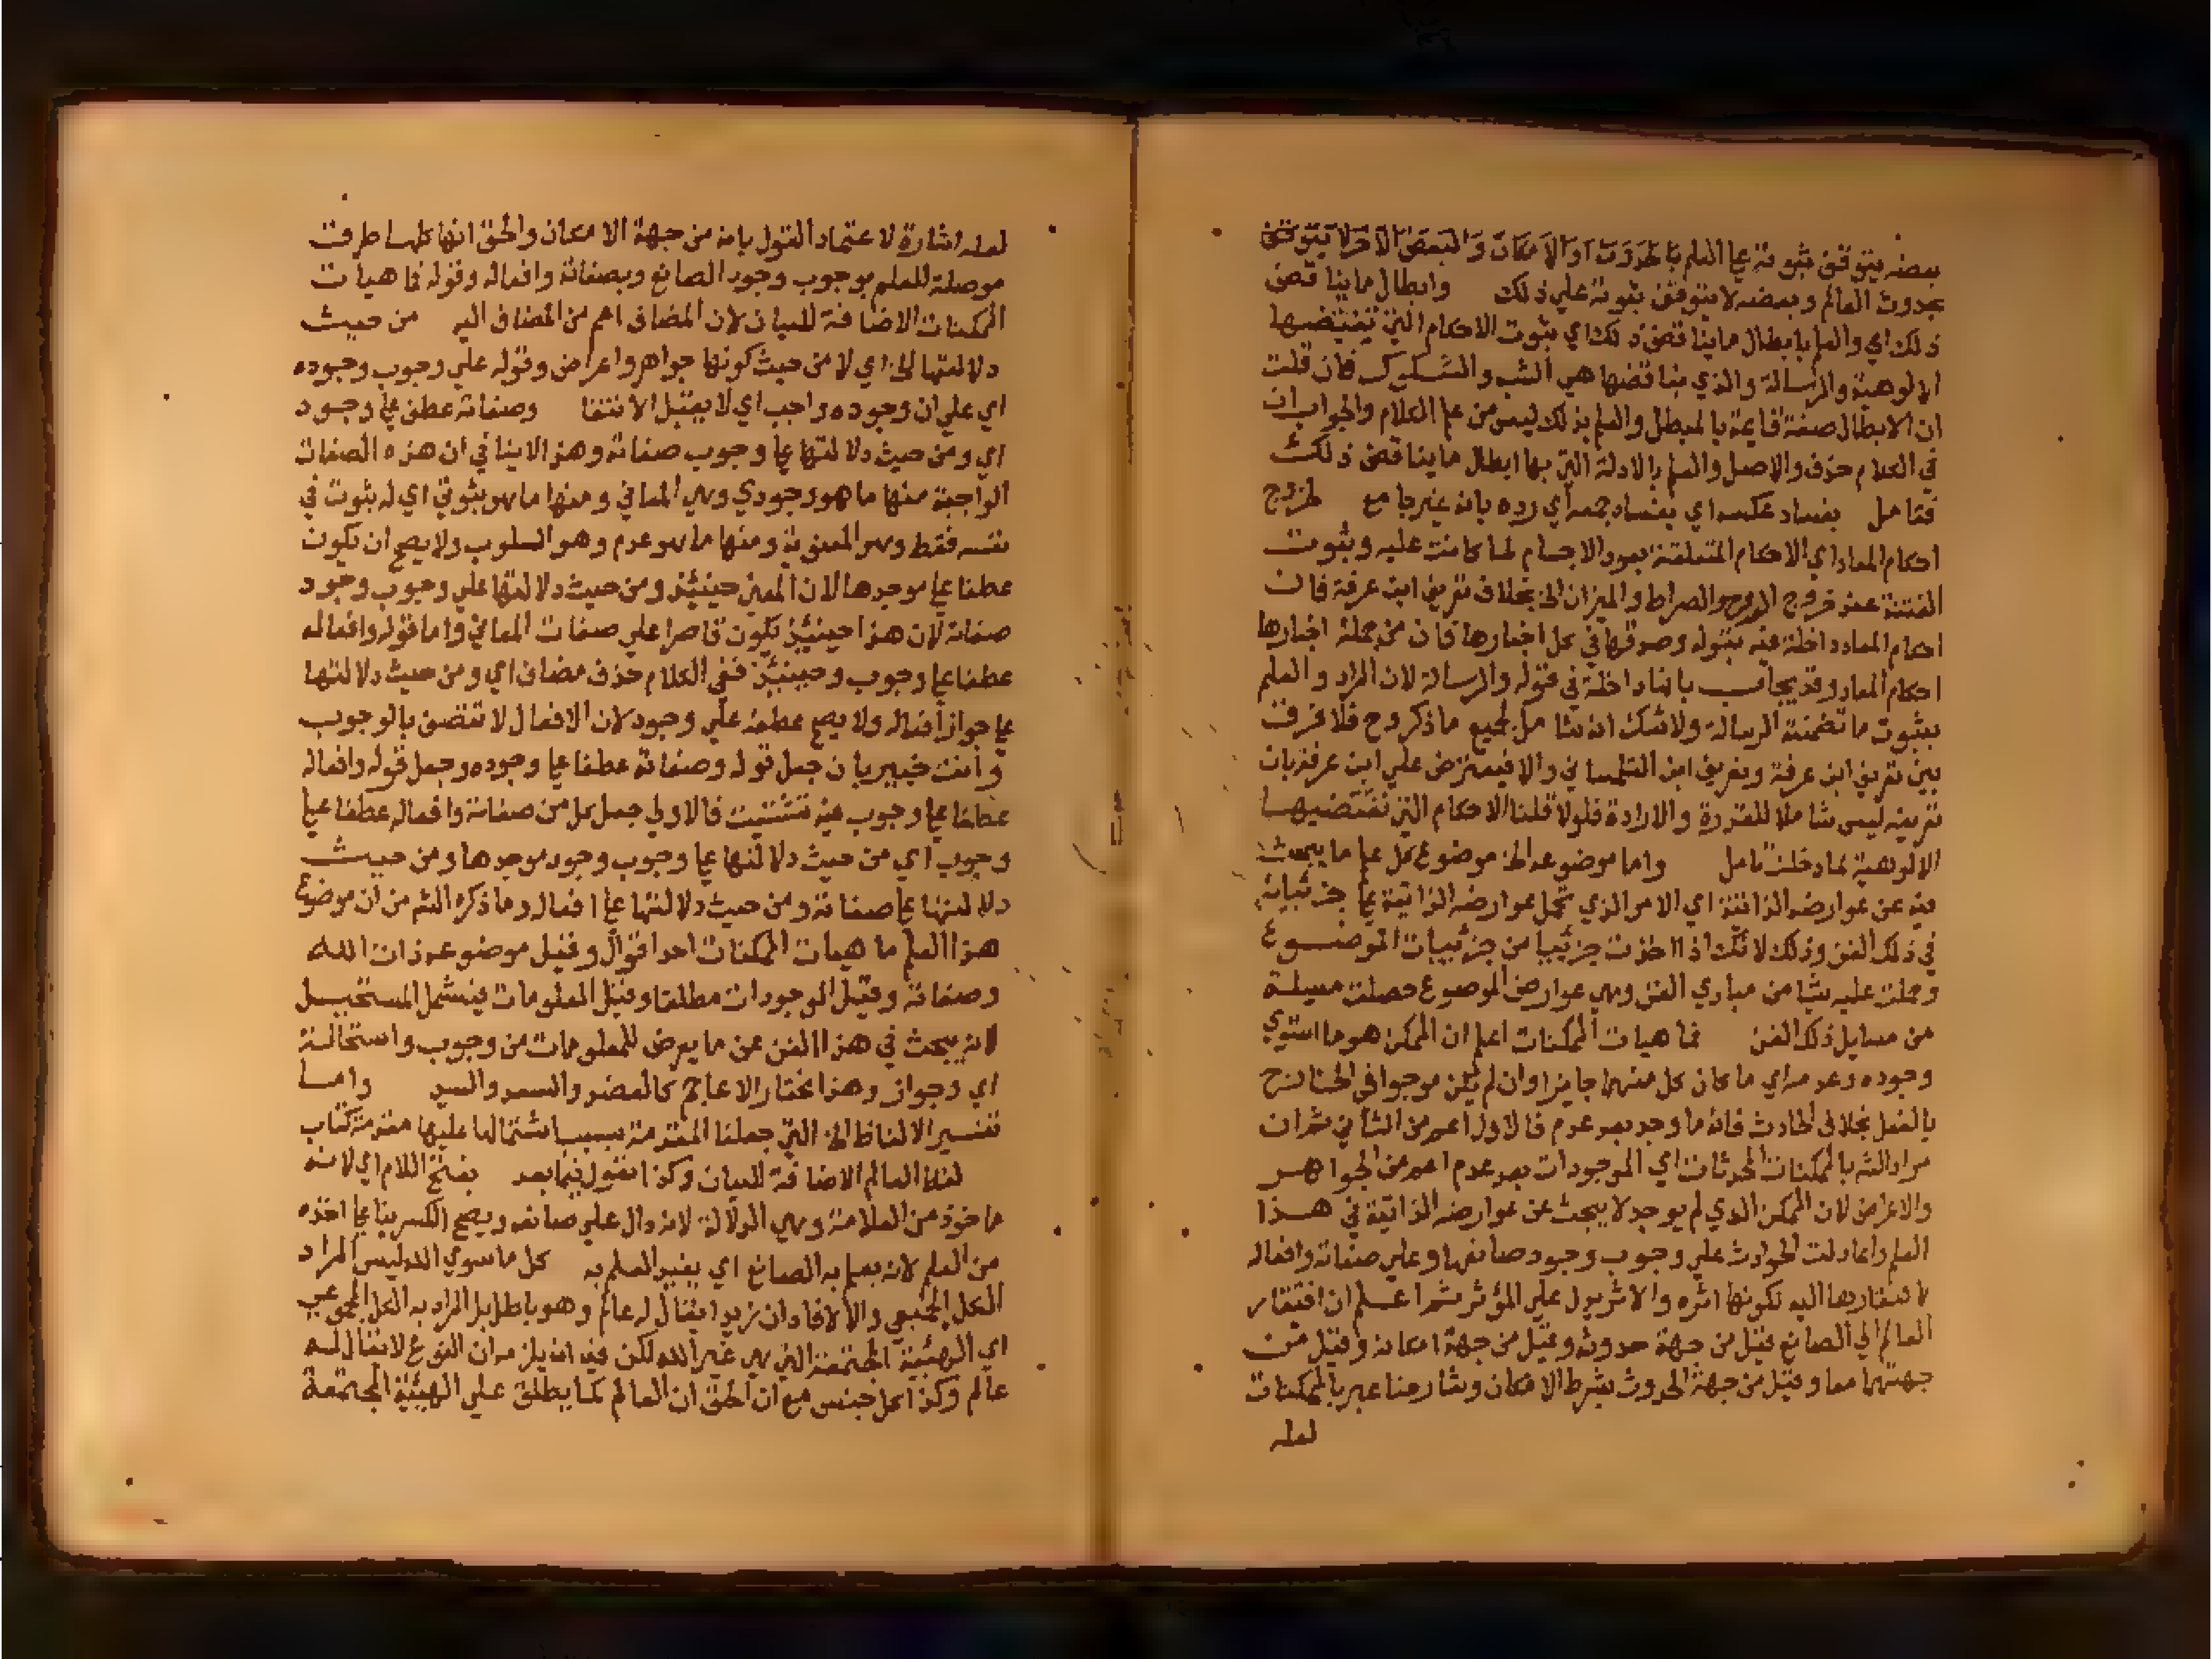 بعضه يتوقف ثبوته علي العلم بالحدوث او الامكان والبعض الاخر لا يتوقف
بحدوث العالم وبعضه لا يتوقف ثبوته علي ذلك وابطال ما يناقض
ذلك اي والعلم بابطال ما يناقض ذلك اي ثبوت الاحكام التي تقتضيها
الالوهية والرسالة والذي يناقضها هي الشبه والشكوك فان قلت
ان الابطال صفة قايمة بالمبطل والعلم بذلك ليس من علم الكلام والجواب ان
في الكلام حذف والاصل والعلم بالادلة التي بها ابطال ما يناقض ذلك
فتامل بفساد عكسه اي بفساد جمعه اي رده بانه غير جامع لخروج
احكام المعاد اي الاحكام المتعلقة بعود الاجسام لما كانت عليه وثبوت
الفتنة عند خروج الروح والصراط والميزان الخ بخلاف تعريف ابن عرفة فان
احكام المعاد داخلة فيه بقوله وصدقها في كل اخبارها فان من جملة اخبارها
احكام المعاد وقد يجاب بانها داخلة في قوله والرسالة لان المراد والعلم
بثبوت ما تضمنته الرسالة ولا شك انه شامل لجميع ما ذكر وح فلا فرق
بين تعريف ابن عرفة وتعريف ابن التلمساني والا فيعترض علي ابن عرفة بان
تعريفه ليس شاملا للقدرة والارادة فلولا قلنا الاحكام التي تقتضيها
الالوهية لما دخلت تامل واما موضوعه الخ موضوع كل علم ما يبحث
فيه عن عوارضه الذاتية اي الامر الذي تحمل عوارضه الذاتية علي جزئياته
في ذلك الفن وذلك لانك اذا اخذت جزئيا من جزئيات الموضوع
وحملت عليه شيا من مبادي الفن وهي عوارض الموضوع حصلت مسيلة
من مسايل ذلك الفن فماهيات الممكنات اعلم ان الممكن هو ما استوي
وجوده وعدمه اي ما كان كل منهما جايزا وان لم يكن موجوا في الخارج
بالفعل بخلاف الحادث فانه ما وجد بعد عدم فالاول اعم من الثاني ثم ان
مراد الشه بالممكنات المحدثات اي الموجودات بعد عدم اعم من الجواهر
والاعراض لان الممكن الذي لم يوجد لا يبحث عن عوارضه الذاتية في هذا
العلم وانما دلت الحوادث علي وجوب وجود صانعها وعلي صفاته وافعاله
لافتقارها اليه لكونها اثره والاثر يدل علي المؤثر ثم اعلم ان افتقار
العالم الي الصانع قيل من جهة حدوثه وقيل من جهة امكانه وقيل من
جهتهما معا وقيل من جهة الحدوث بشرط الامكان وشارحنا عبر بالممكنات
لعله
لعله اشارة لاعتماد القول بانه من جهة الامكان والحق انها كلها طرقت
موصلة للعلم بوجوب وجود الصانع وبصفاته وافعاله وقوله فماهيات
الممكنات الاضافة للبيان لان المضاف اعم من المضاف اليه من حيث
دلالتها الخ اي لا من حيث كونها جواهر واعراض وقوله علي وجوب وجوده
اي علي ان وجوده واجب اي لا يقبل الانتفا وصفاته عطف علي وجود
اي ومن حيث دلالتها علي وجوب صفاته وهذا لا ينافي ان هذه الصفات
الواجبة منها ما هو وجودي وهي المعاني ومنها ما هو ثبوتي اي له ثبوت في
نفسه فقط وهو المعنوية ومنها ما هو عدم وهو السلوب ولا يصح ان يكون
عطفا علي موجدها لان المعني حينئذ ومن حيث دلالتها علي وجوب وجود
صفاته لان هذا حينئذ يكون قاصرا علي صفات المعاني واما قوله وافعاله
عطفا علي وجوب وحينئذ ففي الكلام حذف مضاف اي ومن حيث دلالتها
علي جواز افعاله ولا يصح عطفه علي وجود لان الافعال لا تتصف بالوجوب
وانت خبير بان جعل قوله وصفاته عطفا علي وجوده وجعل قوله وافعاله
عطفا علي وجوب فيه تشتيت فالاولي جعل كل من صفاته وافعاله عطفا علي
وجوب اي من حيث دلالتها علي وجوب وجود موجدها ومن حيث
دلالتها علي صفاته ومن حيث دلالتها علي افعاله وما ذكره الشه من ان موضوع
هذا العلم ماهيات الممكنات احد اقوال وقيل موضوعه ذات الله
وصفاته وقيل الموجودات مطلقا وقيل المعلومات فيشمل المستحيل
لانه يبحث في هذا الفن عن ما يعرض للمعلومات من وجوب واستحالة
اي وجواز وهذا مختار الاعاجم كالعضد والسعد والسيد واما
تفسير الالفاظ الخ التي جعلنا المقدمة بسبب اشتمالها عليها مقدمة كتاب
لفظ العالم الاضافة للبيان وكذا يقول فيما بعد بفتح اللام اي لانه
ماخوذ من العلامة وهي الدلالة لانه دال علي صانعه ويصح الكسر بنا علي اخذه
من العلم لانه يعلم به الصانع اي يفيد العلم به كل ما سوي الله ليس المراد
الكل الجميعي والا لافاد ان زيدا يقال له عالم وهو باطل بل المراد به الكل المجموعي
اي الهيئة المجتمعة التي هي غير الله لكن فيه انه يلزم ان النوع لا يقال له
عالم وكذا كل جنس مع ان الحق ان العالم كما يطلق علي الهيئة المجتمعة